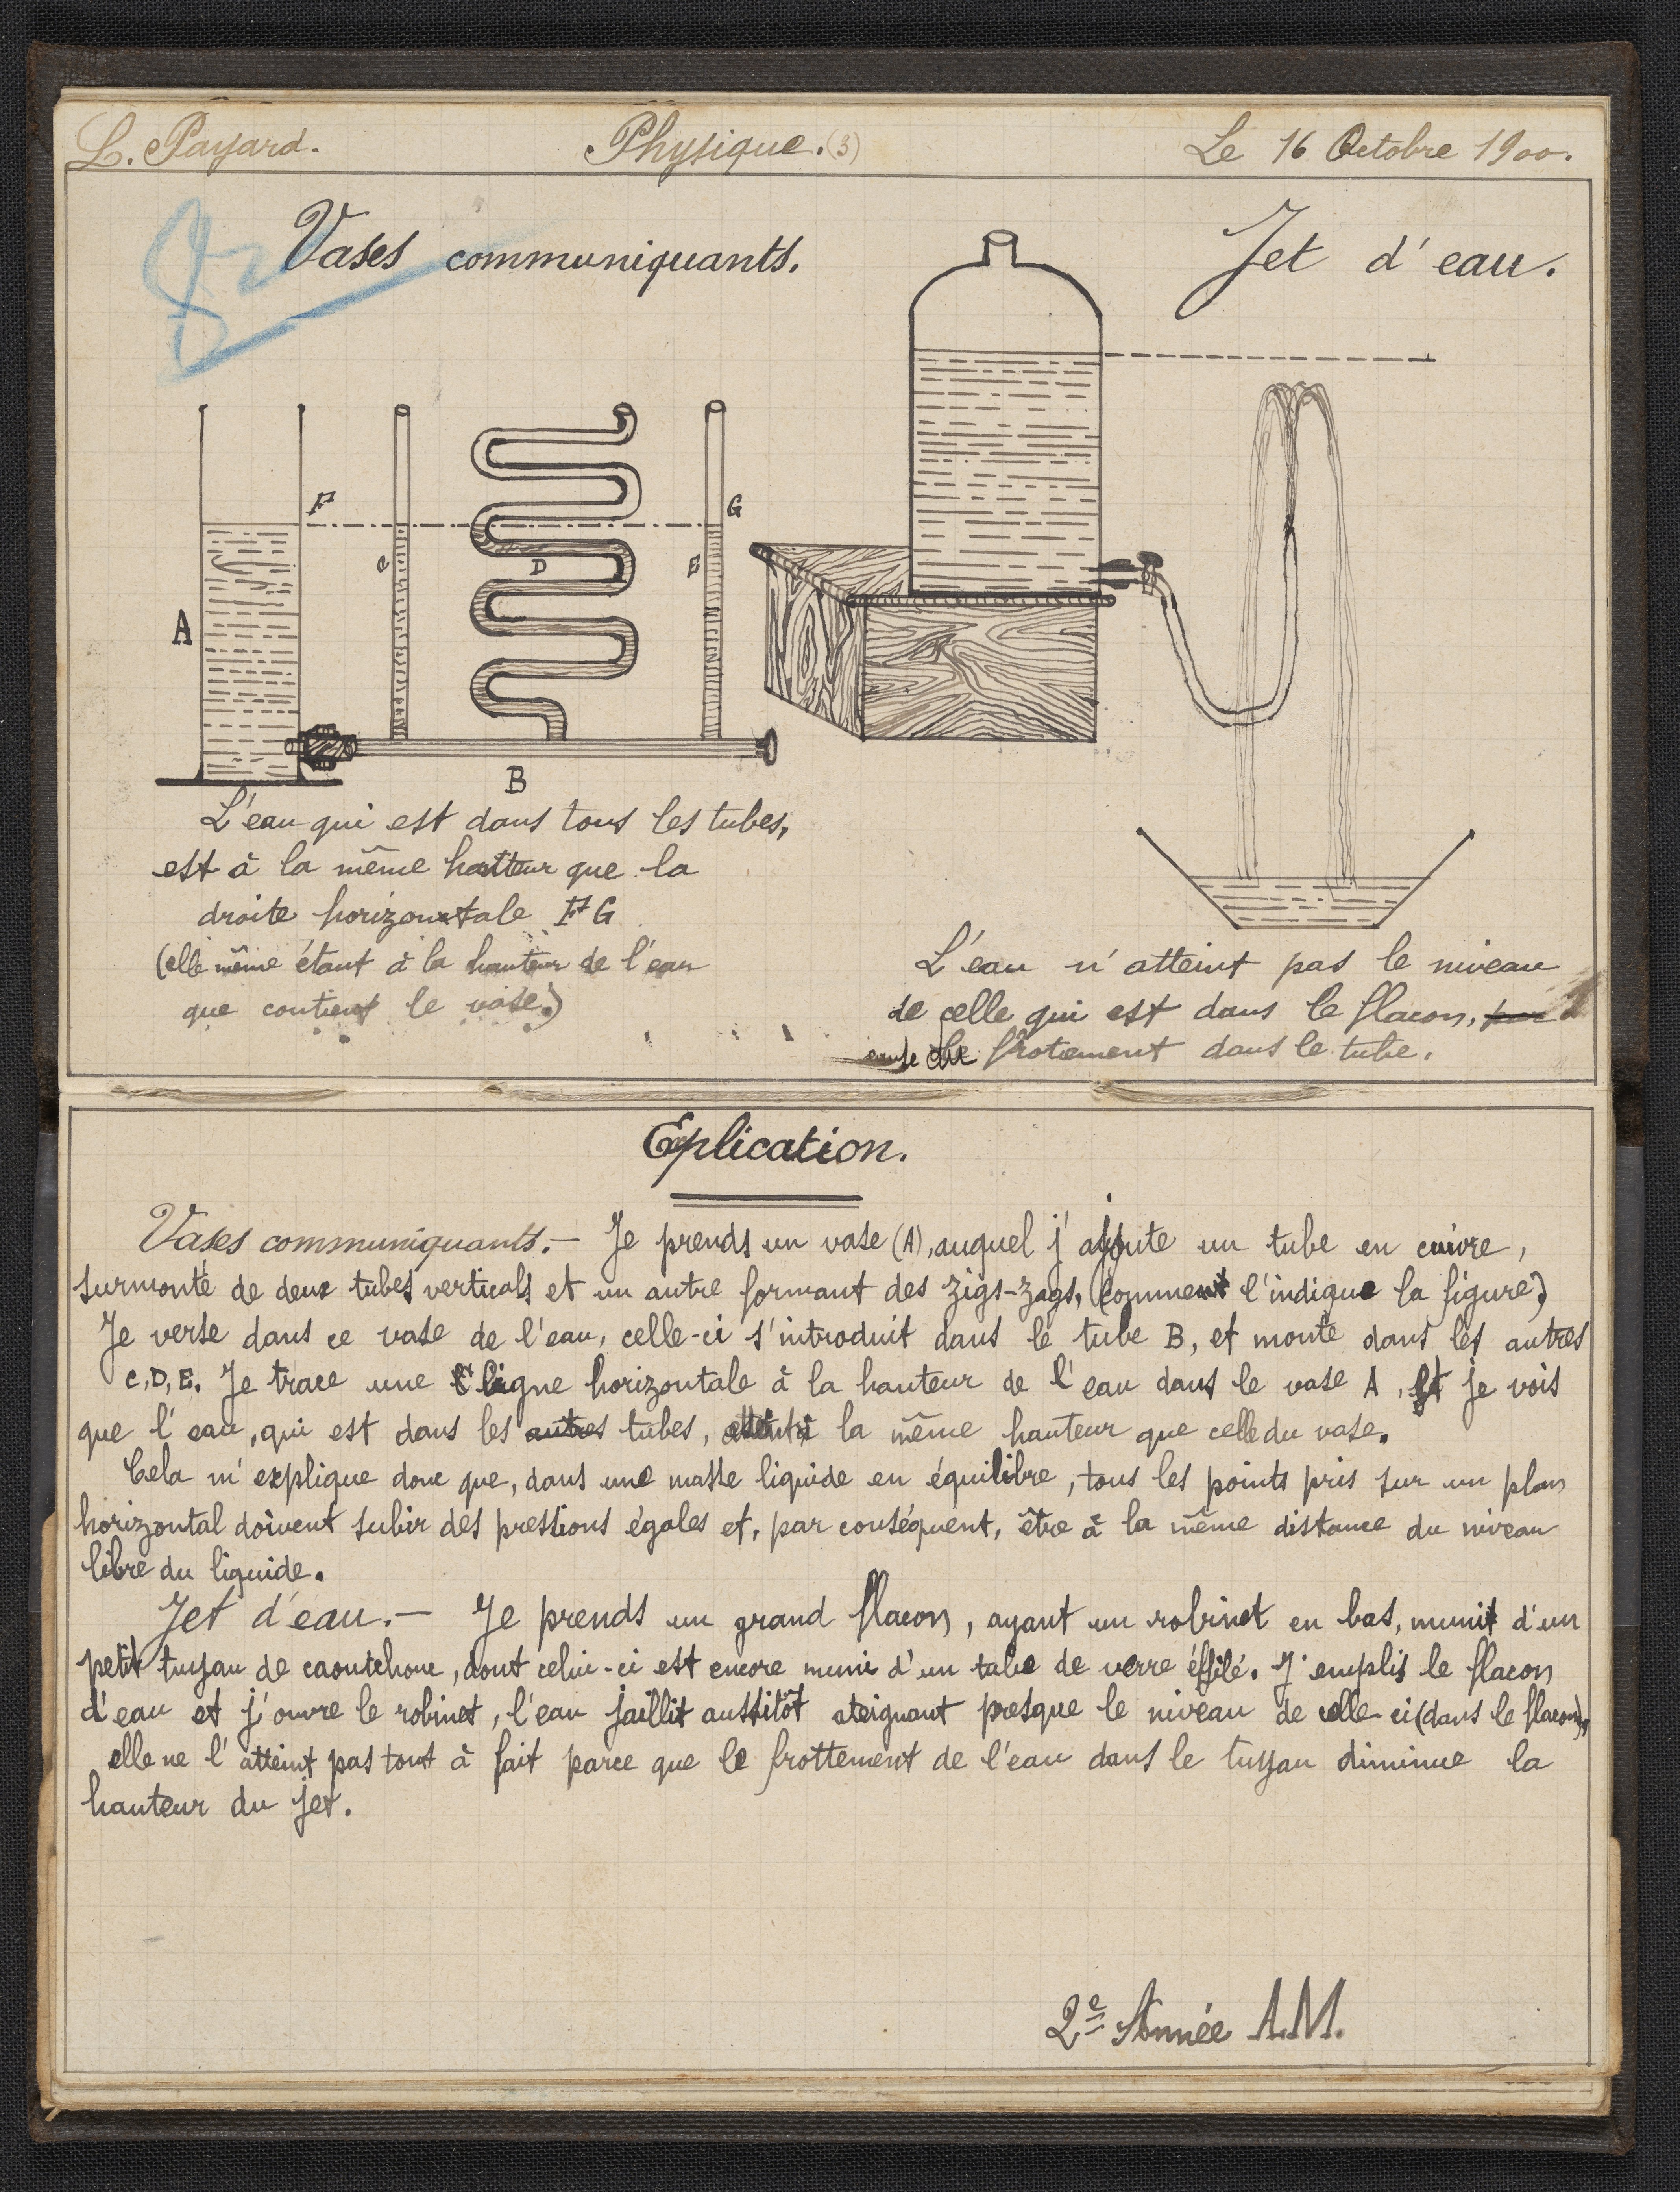 L. Payard. Physique. (3) Le 16 Octobre 1900.
Vases communiquants.
Jet d'eau.
F
G
C
D
E
A
B
L'eau qui est dans tous les tubes,
est à la même hauteur que la
droite horizontale FG
(elle même étant à la hauteur de l'eau
que contient le vase.)
L'eau n'atteint pas le niveau
de celle qui est dans le flacon,
cause du frotement dans le tube.
Eplication.
Vases communiquants. — Je prends un vase (A), auquel j'ajoute un tube en cuivre,
surmonté de deux tubes verticals et un autre formant des zigs-zags, (comme l'indique la figure)
Je verse dans ce vase de l'eau, celle-ci s'introduit dans le tube B, et monte dans les autres
C, D, E. Je trace une ligne horizontale à la hauteur de l'eau dans le vase A, et je vois
que l'eau, qui est dans les autres tubes, la même hauteur que celle du vase.
Cela m'explique donc que, dans une masse liquide en équilibre, tous les points pris sur un plan
horizontal doivent subir des pressions égales et, par conséquent, être à la même distance du niveau
libre du liquide.
Jet d'eau. — Je prends un grand flacon, ayant un robinet en bas, muni d'un
petit tuyau de caoutchouc, dont celui-ci est encore muni d'un tube de verre éffilé. J'emplis le flacon
d'eau et j'ouvre le robinet, l'eau jaillit aussitôt ateignant presque le niveau de celle-ci (dans le flacon),
elle ne l'atteint pas tout à fait parce que le frottement de l'eau dans le tuyau diminue la
hauteur du jet.
2e Année A.M.